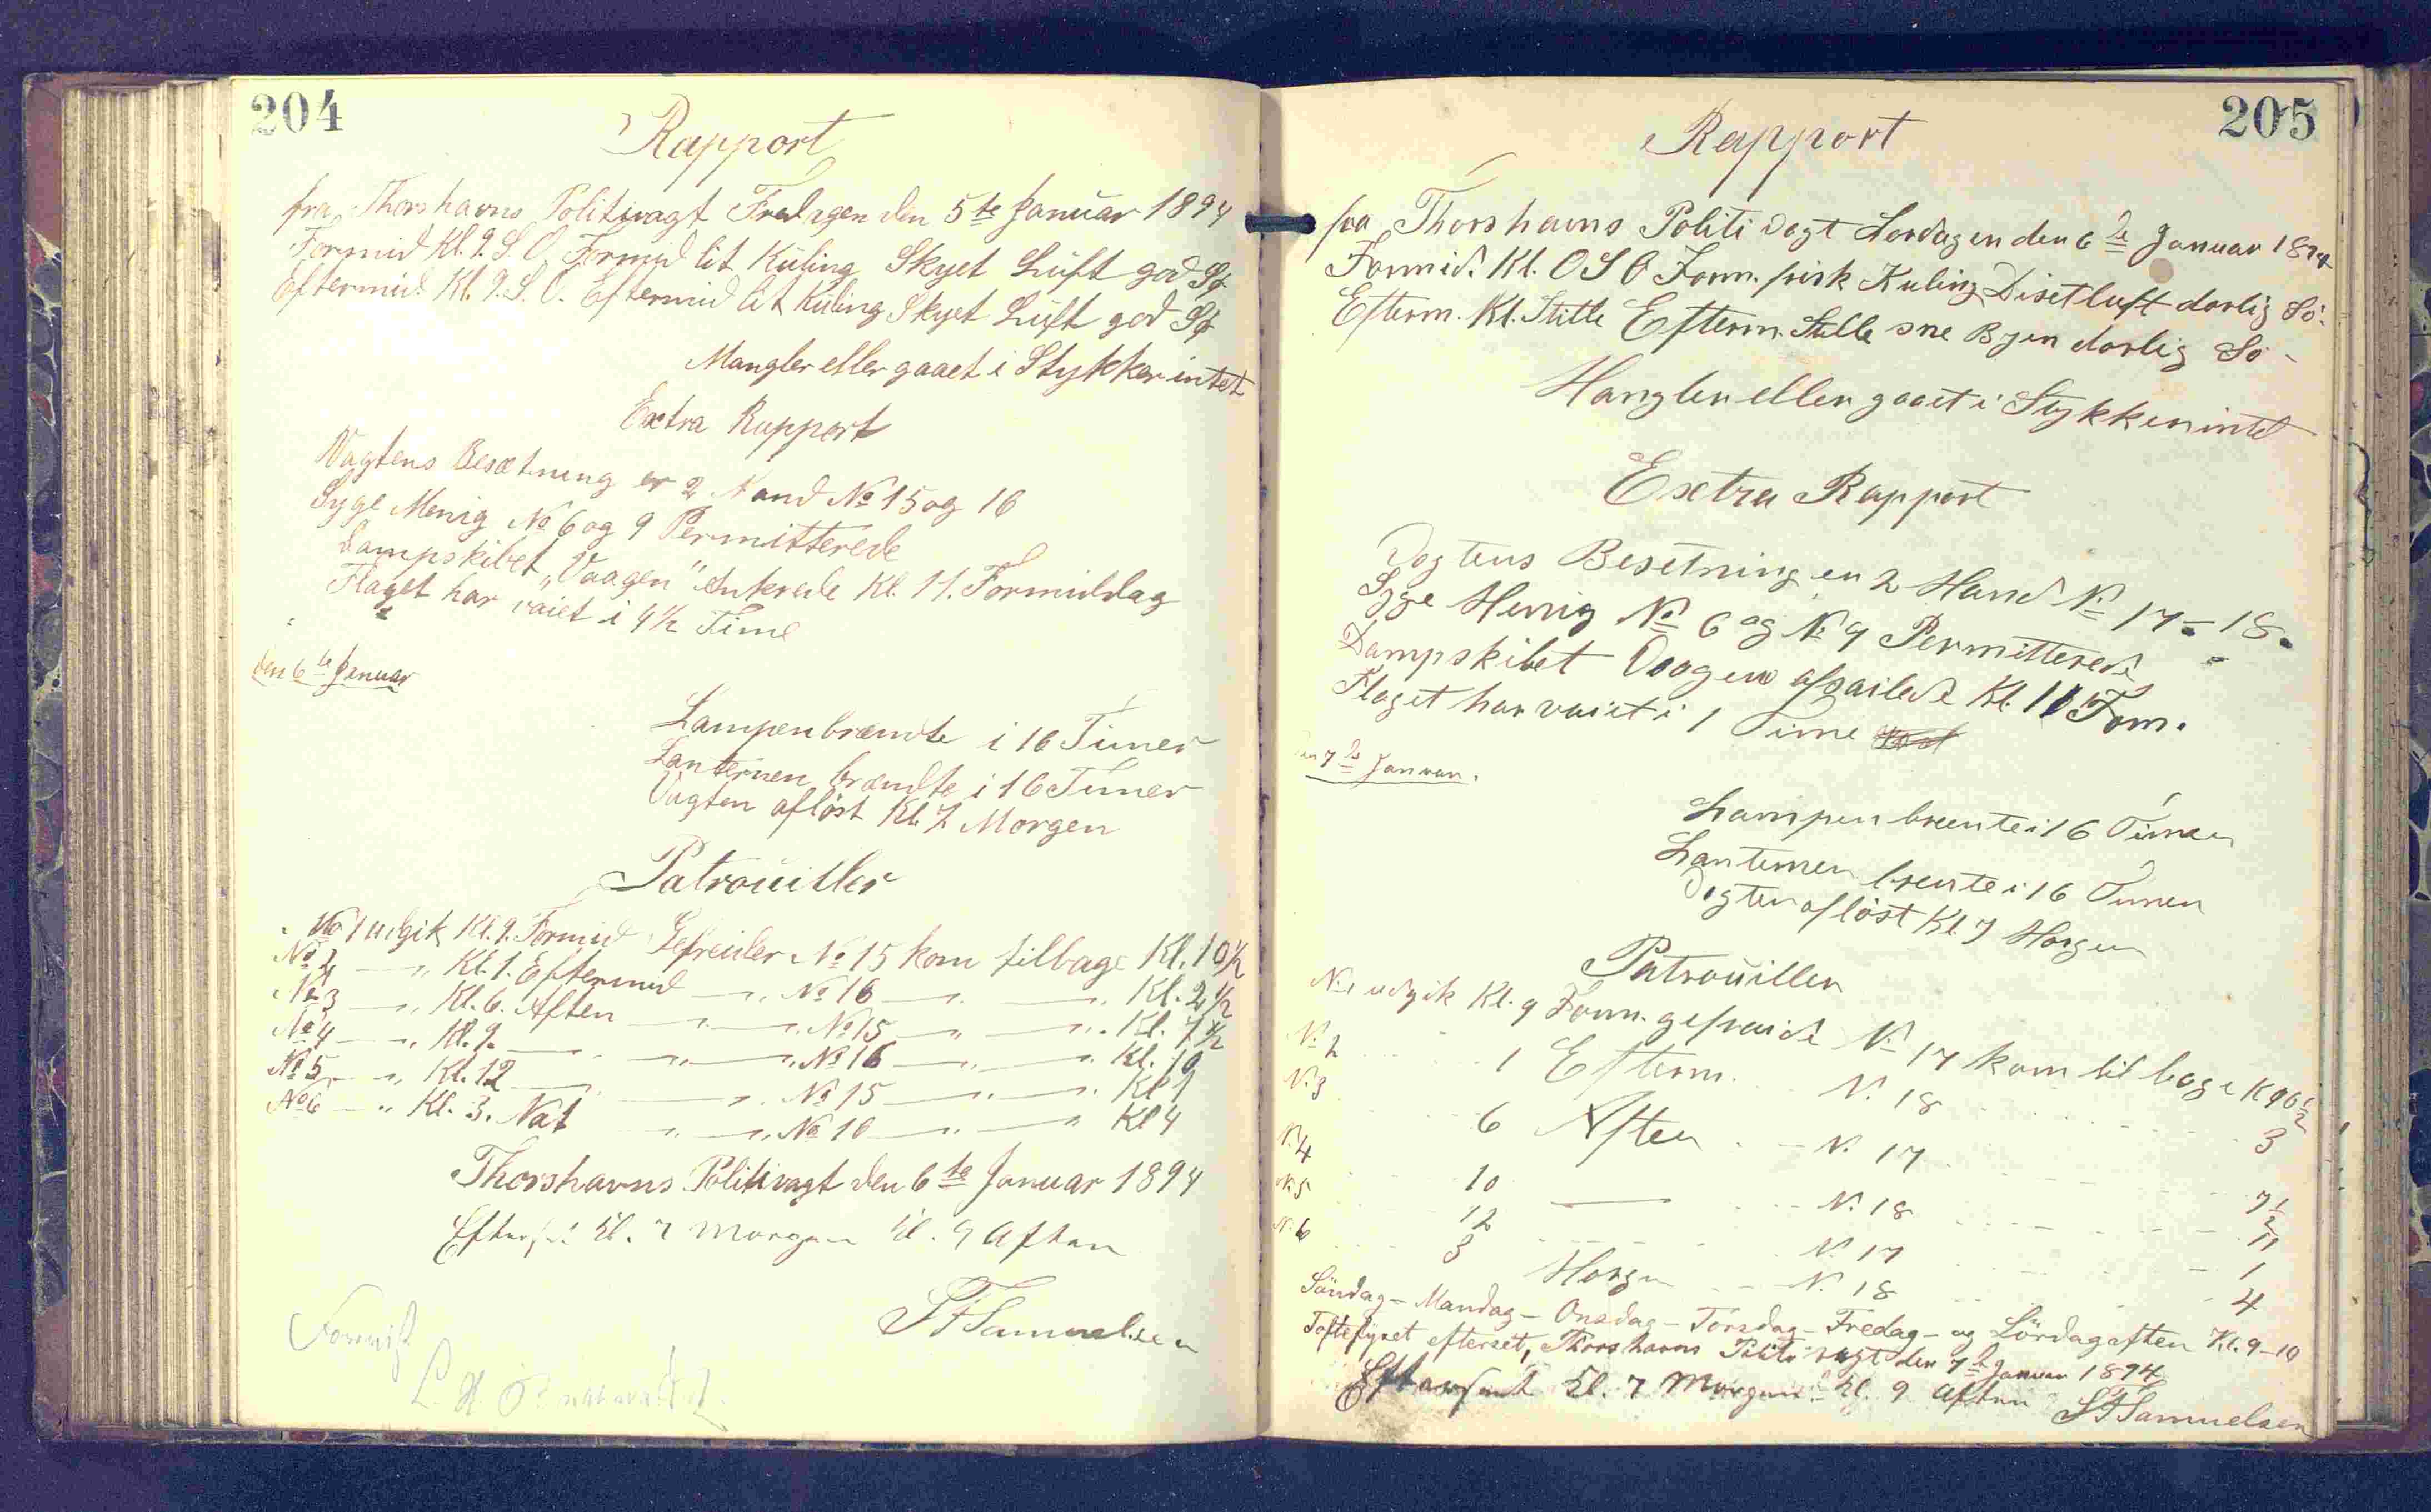 204
Rapport
fra Thorshavns Politivagt Fredagen den 5te Januar 1894
Formid Kl. 9. S. O. Formid lit Kuling Skyet Luft god Sø
Eftermid. Kl. 9. S. O. Eftermid lit Kuling Skyet Luft god Sø
Mangler eller gaaet i Stykker intet
Extra Rapport
Vagtens Besætning er 2 Mand No 15 og 16
Syge Menig No 6 og 9 Permitterede
Dampskibet „Vaagen" Ankrede Kl. 11. Formiddag
Flaget har vaiet i 4 1/2 Time
den 6te Januar
Lampen brændte i 16 Timer
Lanternen brændte i 16 Timer
Vagten aflöst Kl. 7 Morgen
Patrouiller
No 1 udgik Kl. 9. Formid Gefreider No 15 kom tilbage Kl. 10 1/2
No 2 — „ Kl. 1. Eftermid — „ No 16 — „ — „ Kl. 2 1/2
No 3 — „ Kl. 6. Aften — „ — „ No 15 — „ — „ Kl. 7 1/2
No 4 — „ Kl. 9. — „ — „ No 16 — „ — „ Kl. 10
No 5 — „ Kl. 12 — „ — „ No 15 — „ — „ Kl 1
No 6 — „ Kl. 3. Nat — „ — „ No 16 — „ — „ Kl 4
Thorshavns Politivagt den 6te Januar 1894
Kl. 7 Morgen Kl. 9 Aften
SFSamuelsen
205
Rapport
fra Thorshavns Politi Vagt Lordagen den 6te Januar 1894
Formid. Kl. O S O Form. frisk Kuling Diset luft darlig Sö.
Efterm. Kl. Stille Efterm. Stille sne Byen darlig Sö
Mangler eller gaaet i Stykker intet
Extra Rapport
Vagtens Besetning er 2 Mand No 17 - 18.
Syge Menig No 6 og No 9 Permitterede
Dampskibet Vaagen afsailede Kl. 11 Fom.
Flaget har vaiet i 1 Time
den 7de Januar.
Lampen brente i 16 Timer
Lanternen brente i 16 Timer
Vagten aflöst Kl 7 Morgen
Patrouiller
No 1 udgik Kl. 9 Form. gefraide No 17 kom tilbage Kl 10 1/2
No 2 1 Efterm. No 18 3
No 3 6 Aften No 17 7 1/2
No 4 10 — No 18 11
No 5 12 No 17 1
No 6 3 Morgen No 18 4
Söndag - Mandag - Onsdag - Torsdag - Fredag - og Lördagaften Kl. 9-10
Toftefyret efterset, Thorshavns Politivagt den 7de Januar 1894
Kl. 7 Morgen Kl. 9 Aften SFSamuelsen